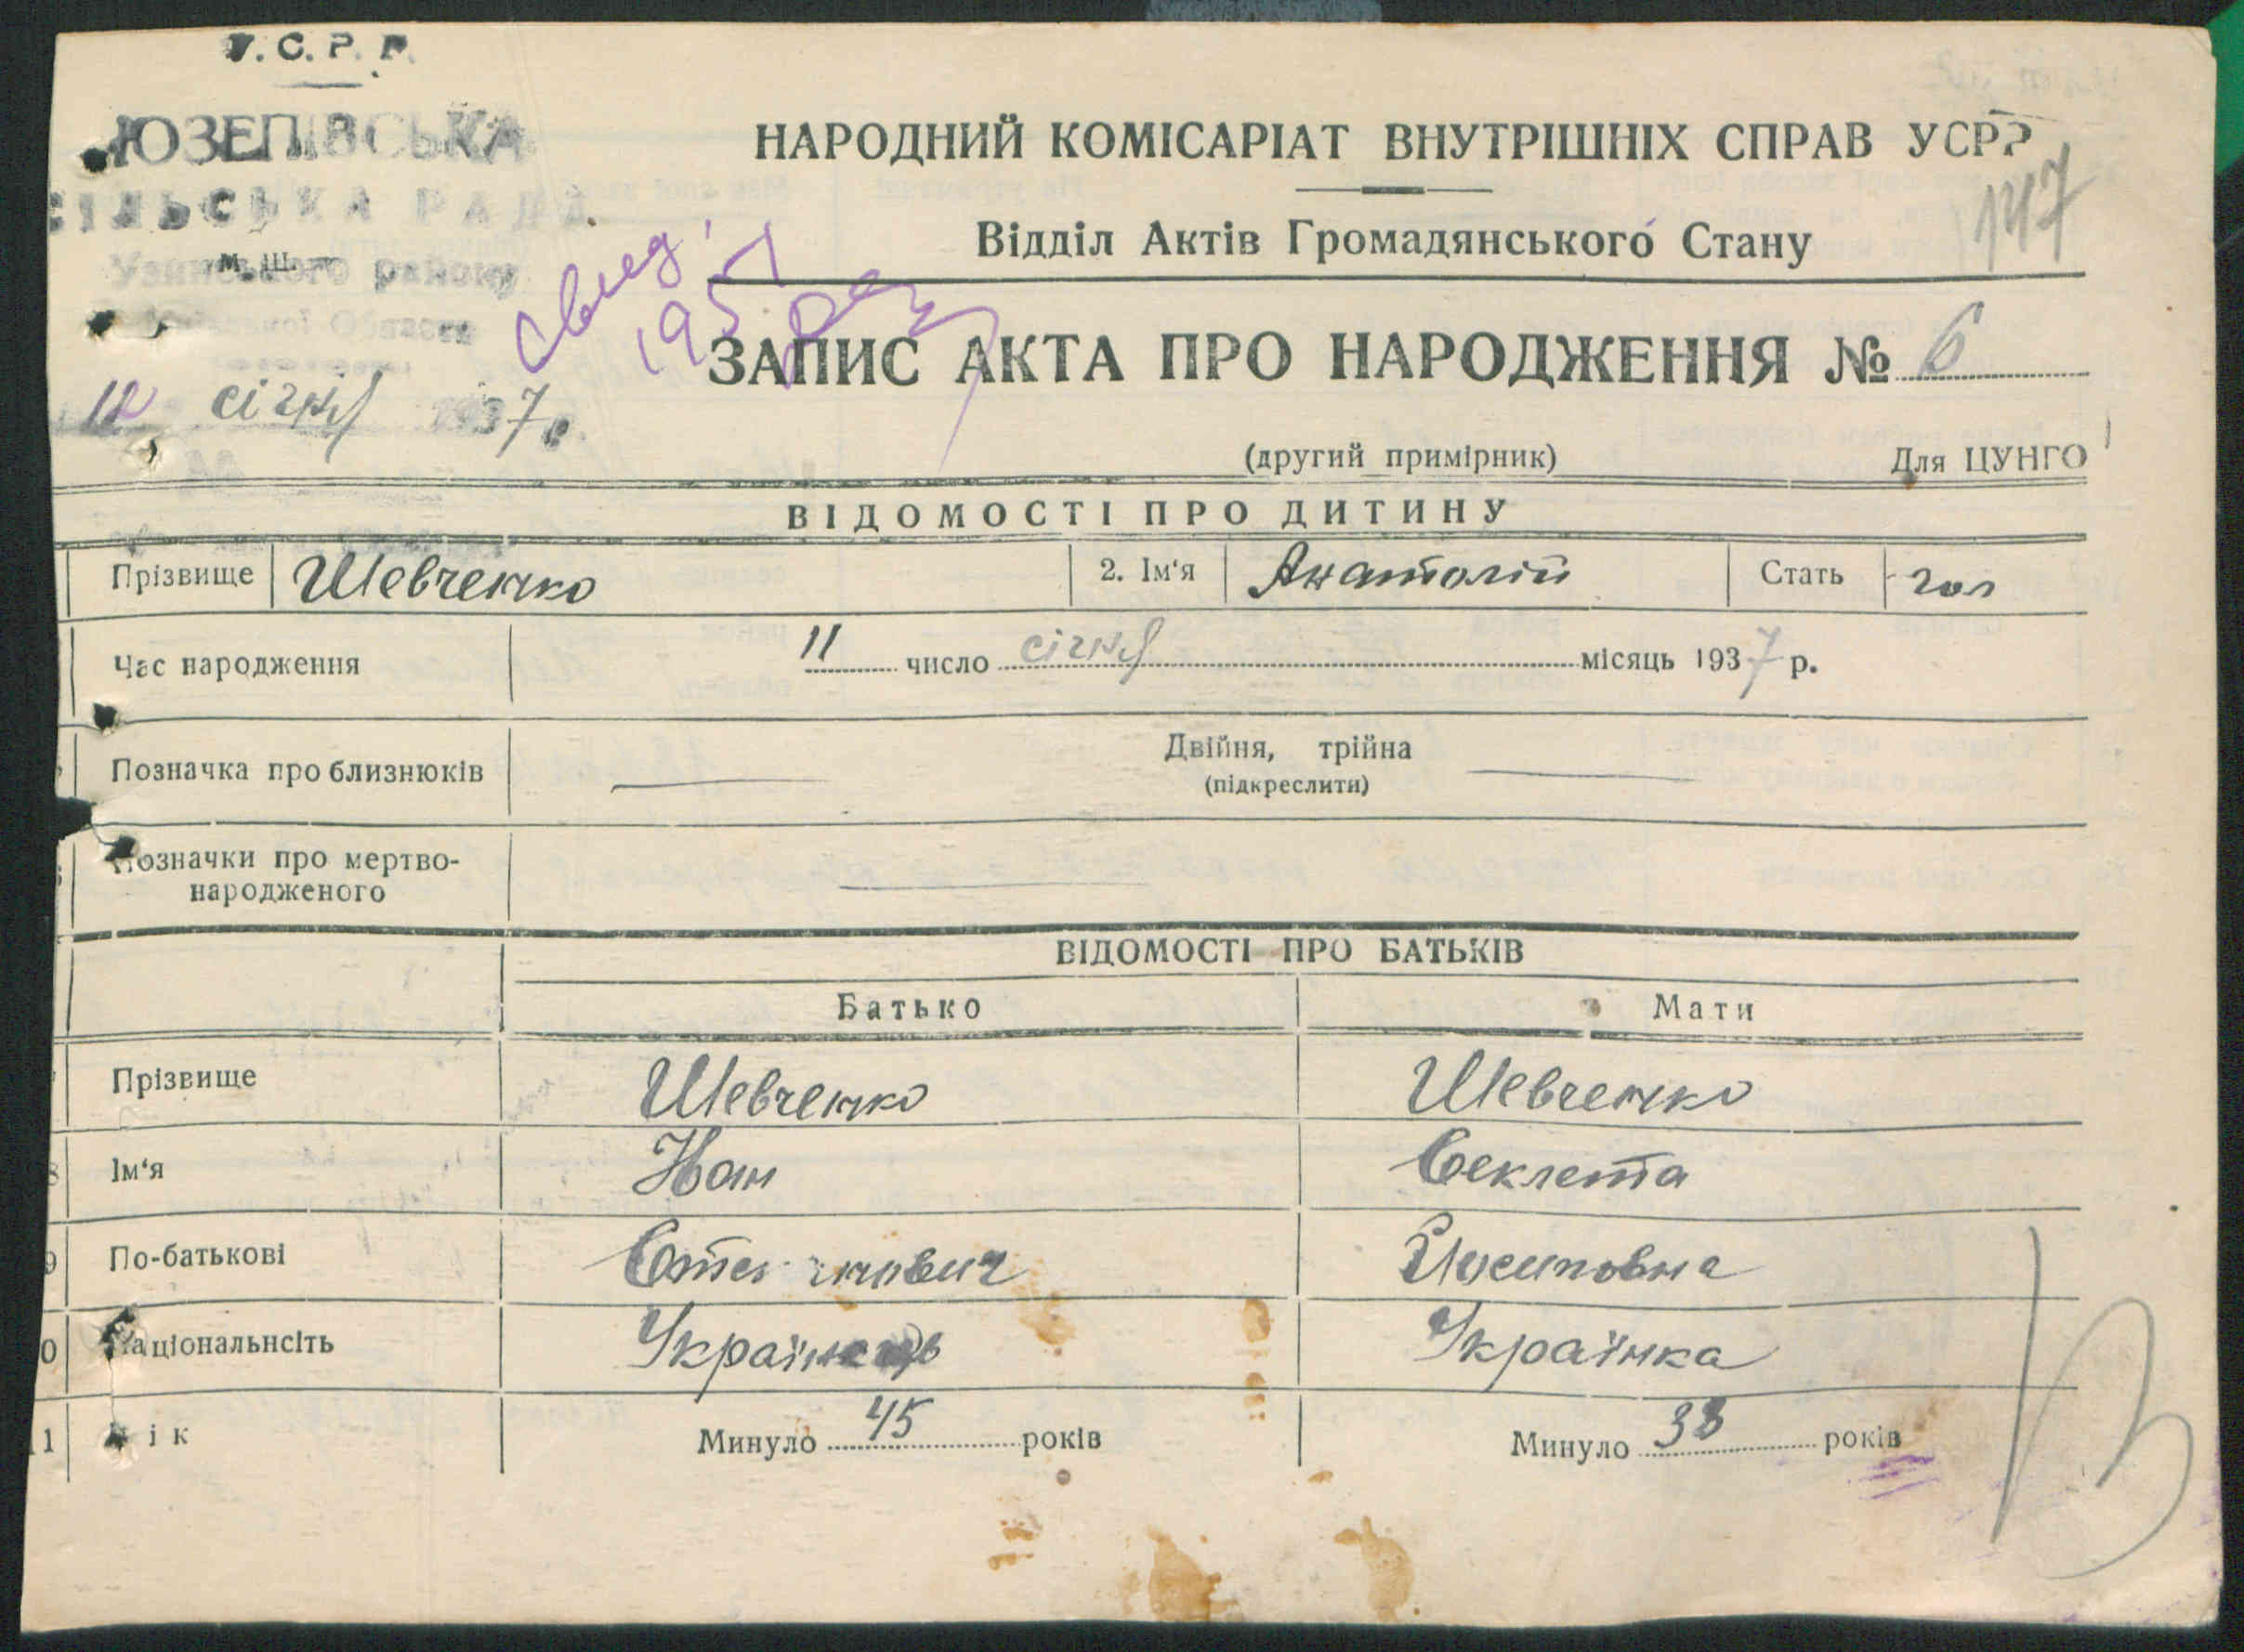 У.С.Р.Р.
ЮЗЕПІВСЬКА
СІЛЬСЬКА РАДА
Узинського району
Київської Області
12 січня 1937 р.
свид.
1951
НАРОДНИЙ КОМІСАРІАТ ВНУТРІШНІХ СПРАВ УСРР
147
Відділ Актів Громадянського Стану
ЗАПИС АКТА ПРО НАРОДЖЕННЯ № 6
(другий примірник) Для ЦУНГО
ВІДОМОСТІ ПРО ДИТИНУ
Прізвище Шевченко 2. Ім'я Анатолій Стать чол
Час народження 11 число січня місяць 1937 р.
Позначка про близнюків Двійня, трійна
(підкреслити)
Позначки про мертво-
народженого
ВІДОМОСТІ ПРО БАТЬКІВ
Батько Мати
Прізвище Шевченко Шевченко
8 Ім'я Іван Секлета
9 По-батькові Степанович Йосиповна
0 Національнсіть Українець Українка
11 Вік Минуло 45 років Минуло 38 років